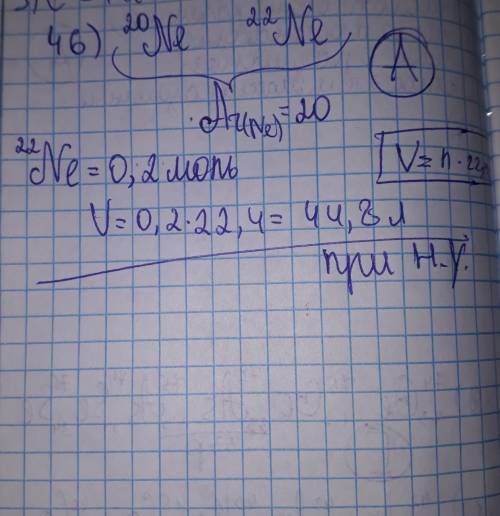 46) ²⁰Ne ²²Ne
A
Ar(Ne)=20
²²Ne = 0,2 моль
V = n · 22,
V = 0,2 · 22,4 = 44,8 л
при н.у.